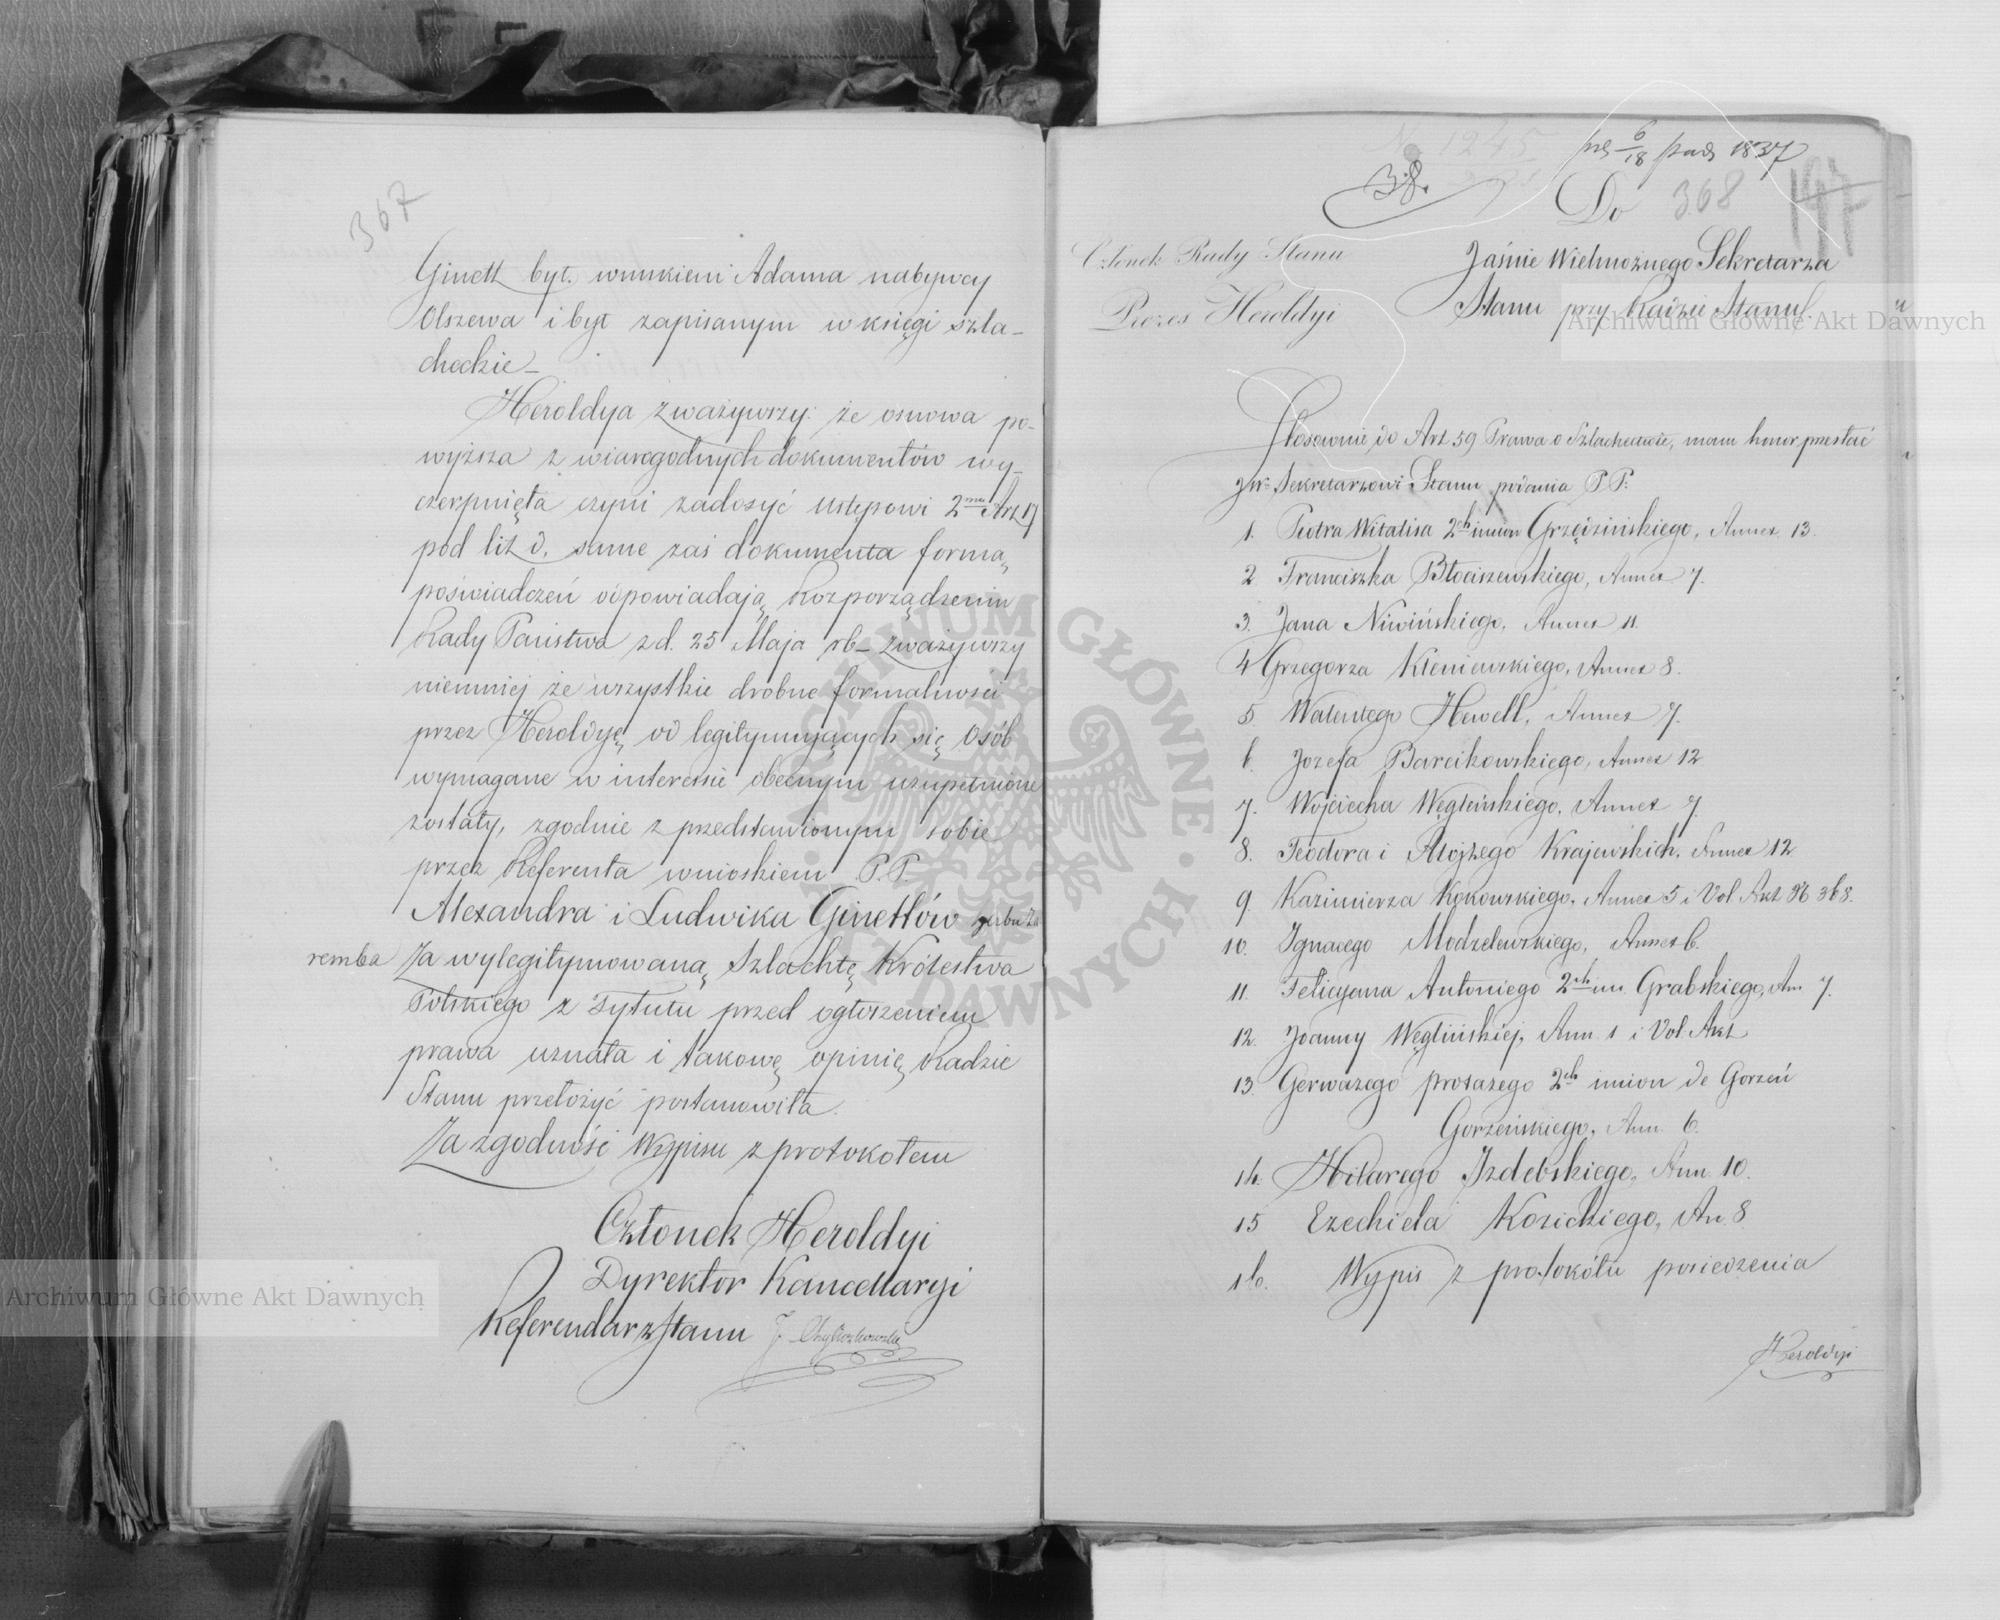 367
Ginett był wnukiem Adama nabywcy
Olszewa i był zapisanym w księgi szla-
checkie –
Heroldya zważywszy: że osnowa po-
wyższa z wiarogodnych dokumentów wy-
czerpnięta czyni zadosyć ustępowi 2mu Art 17
pod lit d. same zaś dokumenta formą
poświadczeń odpowiadają Rozporządzeniu
Rady Państwa z d. 25 Maja rb – zważywszy
niemniej że wszystkie drobne formalności
przez Heroldyę od legitymujących się osób
wymagane w interessie obecnym uzupełnione
zostały, zgodnie z przedstawionym sobie
przez Referenta wnioskiem P.P.
Alexandra i Ludwika Ginettów herbu Za
remba Za wylegitymowaną Szlachtę Królestwa
Polskiego z tytułu przed ogłoszeniem
prawa uznała i takowę opinię Radzie
Stanu przełożyć postanowiła.
Za zgodność Wypisu z protokołem
Członek Heroldyi
Dyrektor Kancellaryi
Referendarz Stanu
N 1245
6/18 paźd 1837
38.
Do 368
Członek Rady Stanu
Prezes Heroldyi
Jaśnie Wielmożnego Sekretarza
Stanu przy Radzie Stanu.
Stosownie do Art 59 Prawa o Szlachectwie, mam honor przesłać
JW Sekretarzowi Stanu podania P P:
1. Piotra Witalisa 2ch imion Grzędzińskiego, Annex 13.
2 Franciszka Błociszewskiego, Annex 7.
3. Jana Niwińskiego, Annex 11.
4 Grzegorza Kleniewskiego, Annex 8.
5. Walentego Hewell, Annex 7.
6. Józefa Barcikowskiego, Annex 12
7. Wojciecha Węgleńskiego, Annex 7.
8. Teodora i Alojzego Krajewskich, Annex 12
9. Kazimierza Kokowskiego, Annex 5 i Vol. Akt № 368.
10. Ignacego Modzelewskiego, Annex 6.
11. Felicyana Antoniego 2ch im. Grabskiego, An 7.
12. Joanny Węglińskiej, Ann. 1 i Vol. Akt
13 Gerwazego Protazego 2ch imion de Gorzeń
Gorzeńskiego, Ann. 6.
14. Hilarego Izdebskiego, Ann. 10.
15 Ezechiela Kozickiego, An. 8
16. Wypis z protokółu posiedzenia
Heroldyi
Archiwum Główne Akt Dawnych
Archiwum Główne Akt Dawnych
ARCHIWUM GŁÓWNE AKT DAWNYCH